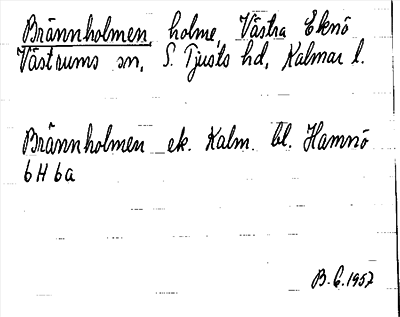 Brännholmen, holme, Västra Eknö
Västrums sn, S. Tjusts hd, Kalmar l.
Brännholmen ek. Kalm. bl. Hamnö
6 H 6a
B. G. 1957